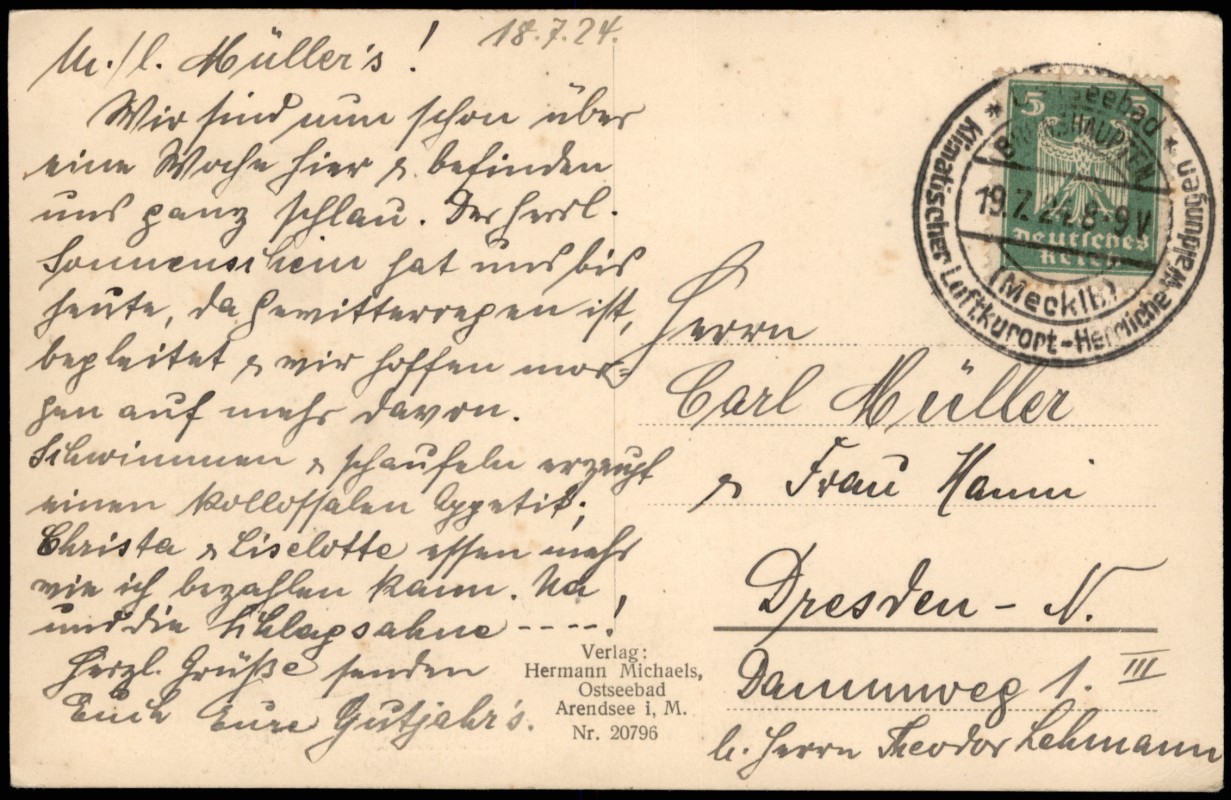 18.7.24.
M./l. Müller's!
Wir sind nun schon über
eine Woche hier & befinden
uns ganz schlau. Der herrl.
Sonnenschein hat uns bis
heute, da Gewitterregen ist,
begleitet & wir hoffen mor-
gen auf mehr davon.
Schwimmen & schaufeln erzeugt
einen kollossalen Appetit;
Christa & Liselotte essen mehr
wie ich bezahlen kann. Na,
und die Schlagsahne ----!
Herzl. Grüße senden
Euch Eure Gutjahr's.
Verlag:
Hermann Michaels,
Ostseebad
Arendsee i. M.
Nr. 20796
5 5
Deutsches
Reich
Ostseebad
BRUNSHAUPTEN
19.7.24.8-9V.
(Mecklb)
* Klimatischer Luftkurort - Herrliche Waldungen *
Herrn
Carl Müller
& Frau Hanni
Dresden - N.
Dammweg 1. III
b. Herrn Theodor Lehmann